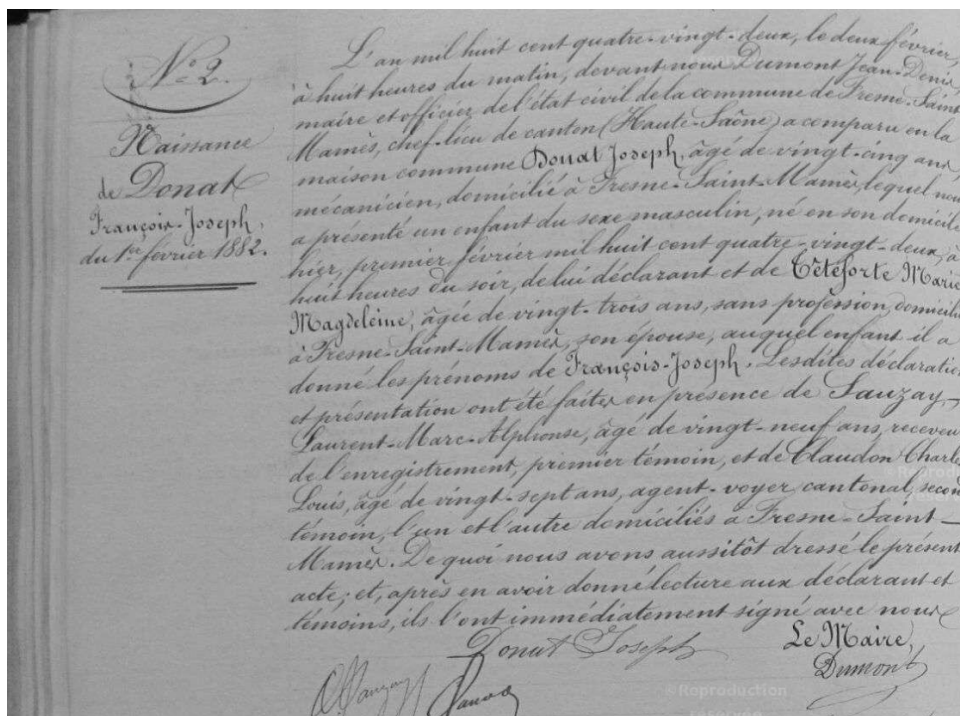 N° 2.
Naissance
de Donat
François-Joseph,
du 1er février 1882.
L'an mil huit cent quatre-vingt-deux, le deux février,
à huit heures du matin, devant nous Dumont Jean-Denis,
maire et officier de l'état civil de la commune de Fresne-Saint
Mamès, chef-lieu de canton (Haute-Saône) a comparu en la
maison commune Donat Joseph, âgé de vingt-cinq ans,
mécanicien, domicilié à Fresne-Saint-Mamès, lequel nous
a présenté un enfant du sexe masculin, né en son domicile
hier, premier février mil huit cent quatre-vingt-deux, à
huit heures du soir, de lui déclarant et de Têteforte Marie
Magdeleine, âgée de vingt-trois ans, sans profession, domicilié
à Fresne-Saint-Mamès, son épouse, auquel enfant il a
donné les prénoms de François-Joseph. Lesdites déclaration
et présentation ont été faites en présence de Sauzay,
Laurent-Marc-Alphonse, âgé de vingt-neuf ans, receveur
de l'enregistrement, premier témoin, et de Claudon Charles
Louis, âgé de vingt-sept ans, agent-voyer cantonal, second
témoin, l'un et l'autre domiciliés à Fresne-Saint-
Mamès. De quoi nous avons aussitôt dressé le présent
acte; et, après en avoir donné lecture aux déclarant et
témoins, ils l'ont immédiatement signé avec nous
Donat Joseph
Le Maire,
Dumont
© Reproduction